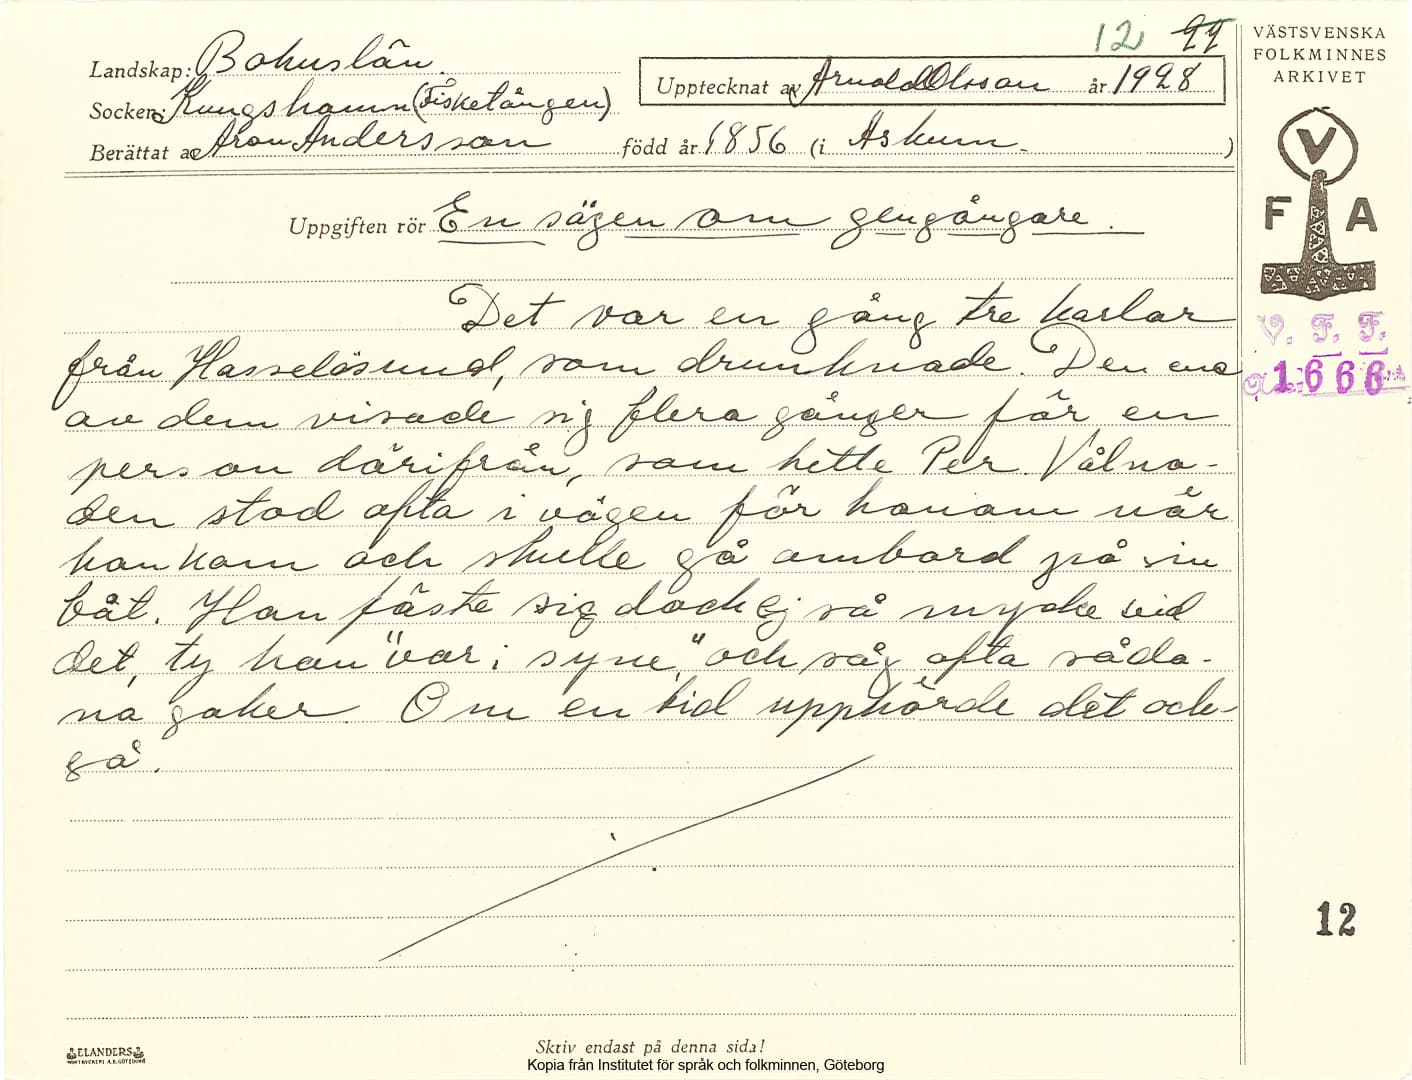 12 99
VÄSTSVENSKA
FOLKMINNES
ARKIVET
Landskap: Bohuslän.
Upptecknat av Arnold Olsson år 1928
Socken: Kungshamn (Fisketången)
Berättat av Aron Andersson född år 1856 (i Askum. )
V
F A
Uppgiften rör En sägen om gengångare.
Det var en gång tre karlar
från Hasselösund, som drunknade. Den ene
av dem visade sig flera gånger för en
person därifrån, som hette Per. Vålna-
den stod ofta i vägen för honom när
han kom och skulle gå ombord på sin
båt. Han fäste sig dock ej så mycke vid
det, ty han "var i syne," och såg ofta såda-
na saker. Om en tid upphörde det ock-
så.
V. F. F.
1666
12
ELANDERS
Skriv endast på denna sida!
Kopia från Institutet för språk och folkminnen, Göteborg